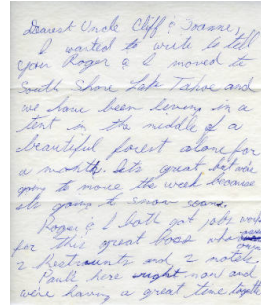 Dearest Uncle Cliff & Joanne,
I wanted to write to tell
you Roger & I moved to
South Shore Lake Tahoe and
we have been living in a
tent in the middle of a
beautiful forest alone for
a month. Its great but we're
going to move this week because
its going to snow soon.
Roger & I both got jobs work
for this great boss who
2 Restraunts and 2 motels.
Paul's here right now and
we're having a great time together